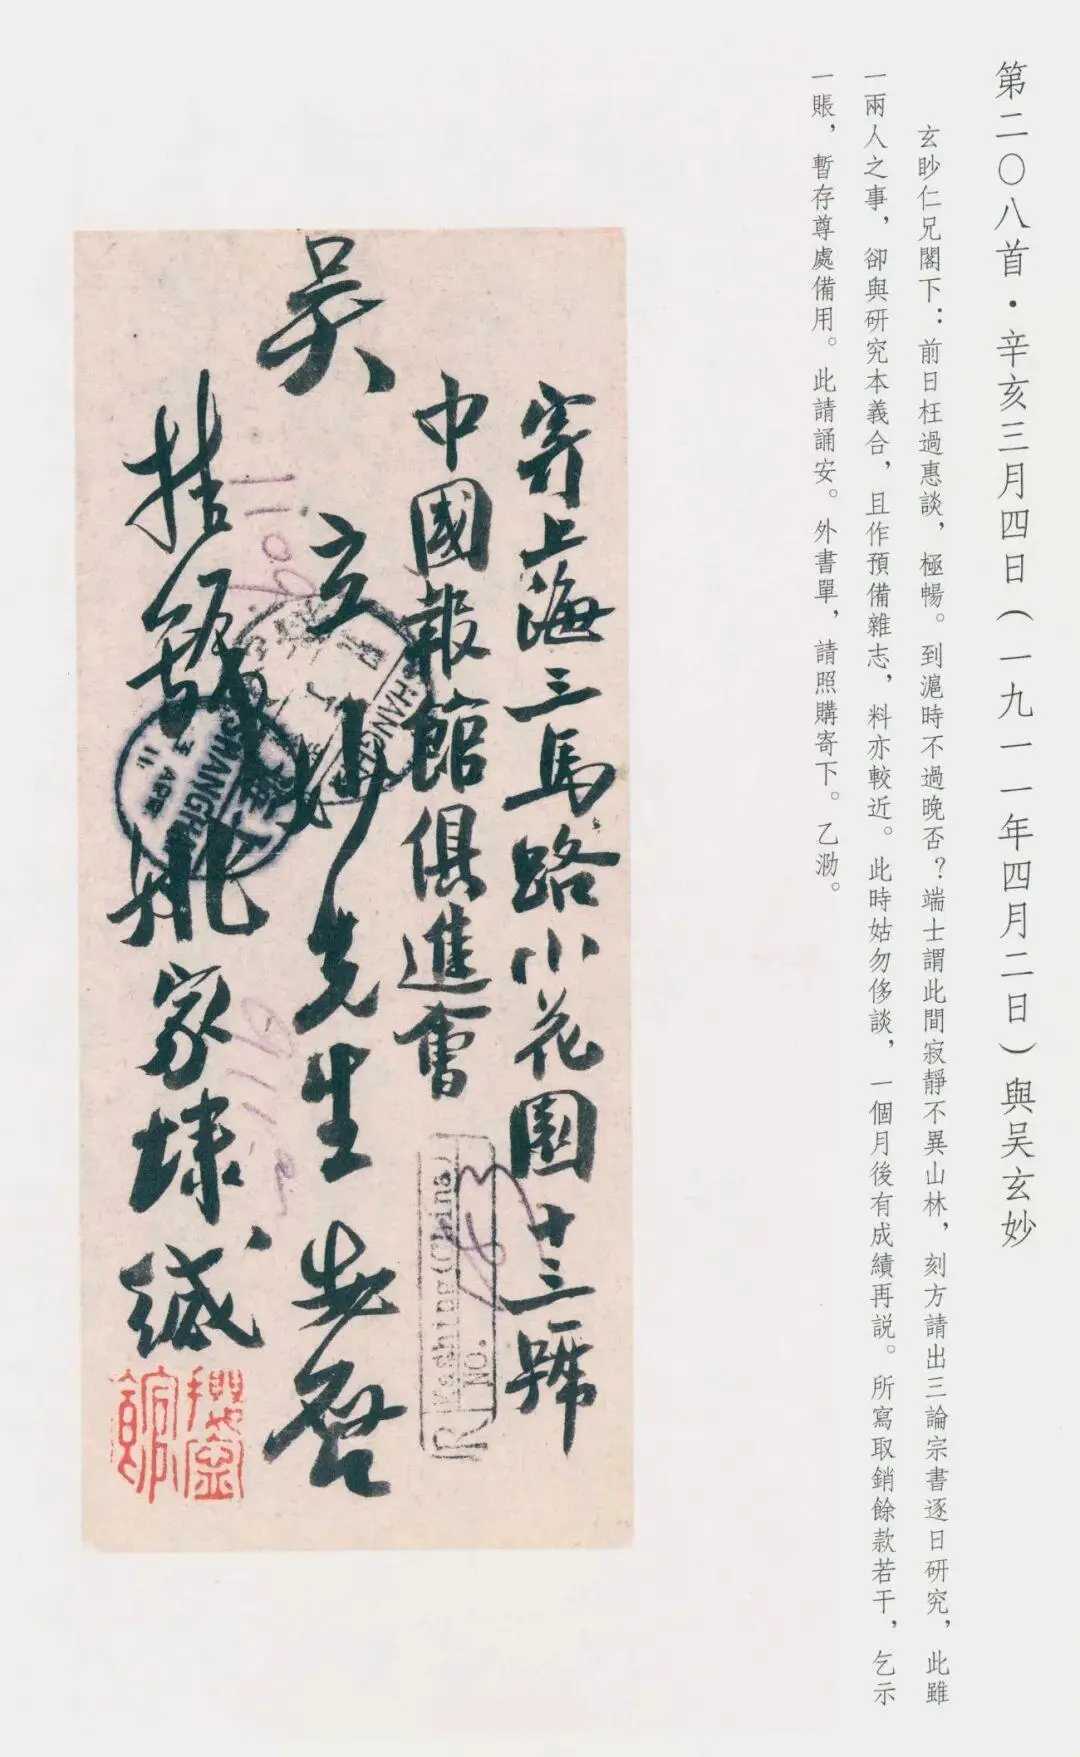 第二〇八首·辛亥三月四日(一九一一年四月二日)與吴玄妙
玄眇仁兄閣下：前日枉過惠談，極暢。到滬時不過晚否？端士謂此間寂靜不異山林，刻方請出三論宗書逐日研究，此雖
一兩人之事，卻與研究本義合，且作預備雜志，料亦較近。此時姑勿侈談，一個月後有成績再説。所寫取銷餘款若干，乞示
一賬，暫存尊處備用。此請誦安。外書單，請照購寄下。乙泐。
寄上海三馬路小花園十三號
中國報館俱進會
吴
玄妙先生
啓
姚家埭緘
SHANGHAI
SHANGHAI
3 APR
11
Kashing(China)
R No.
館